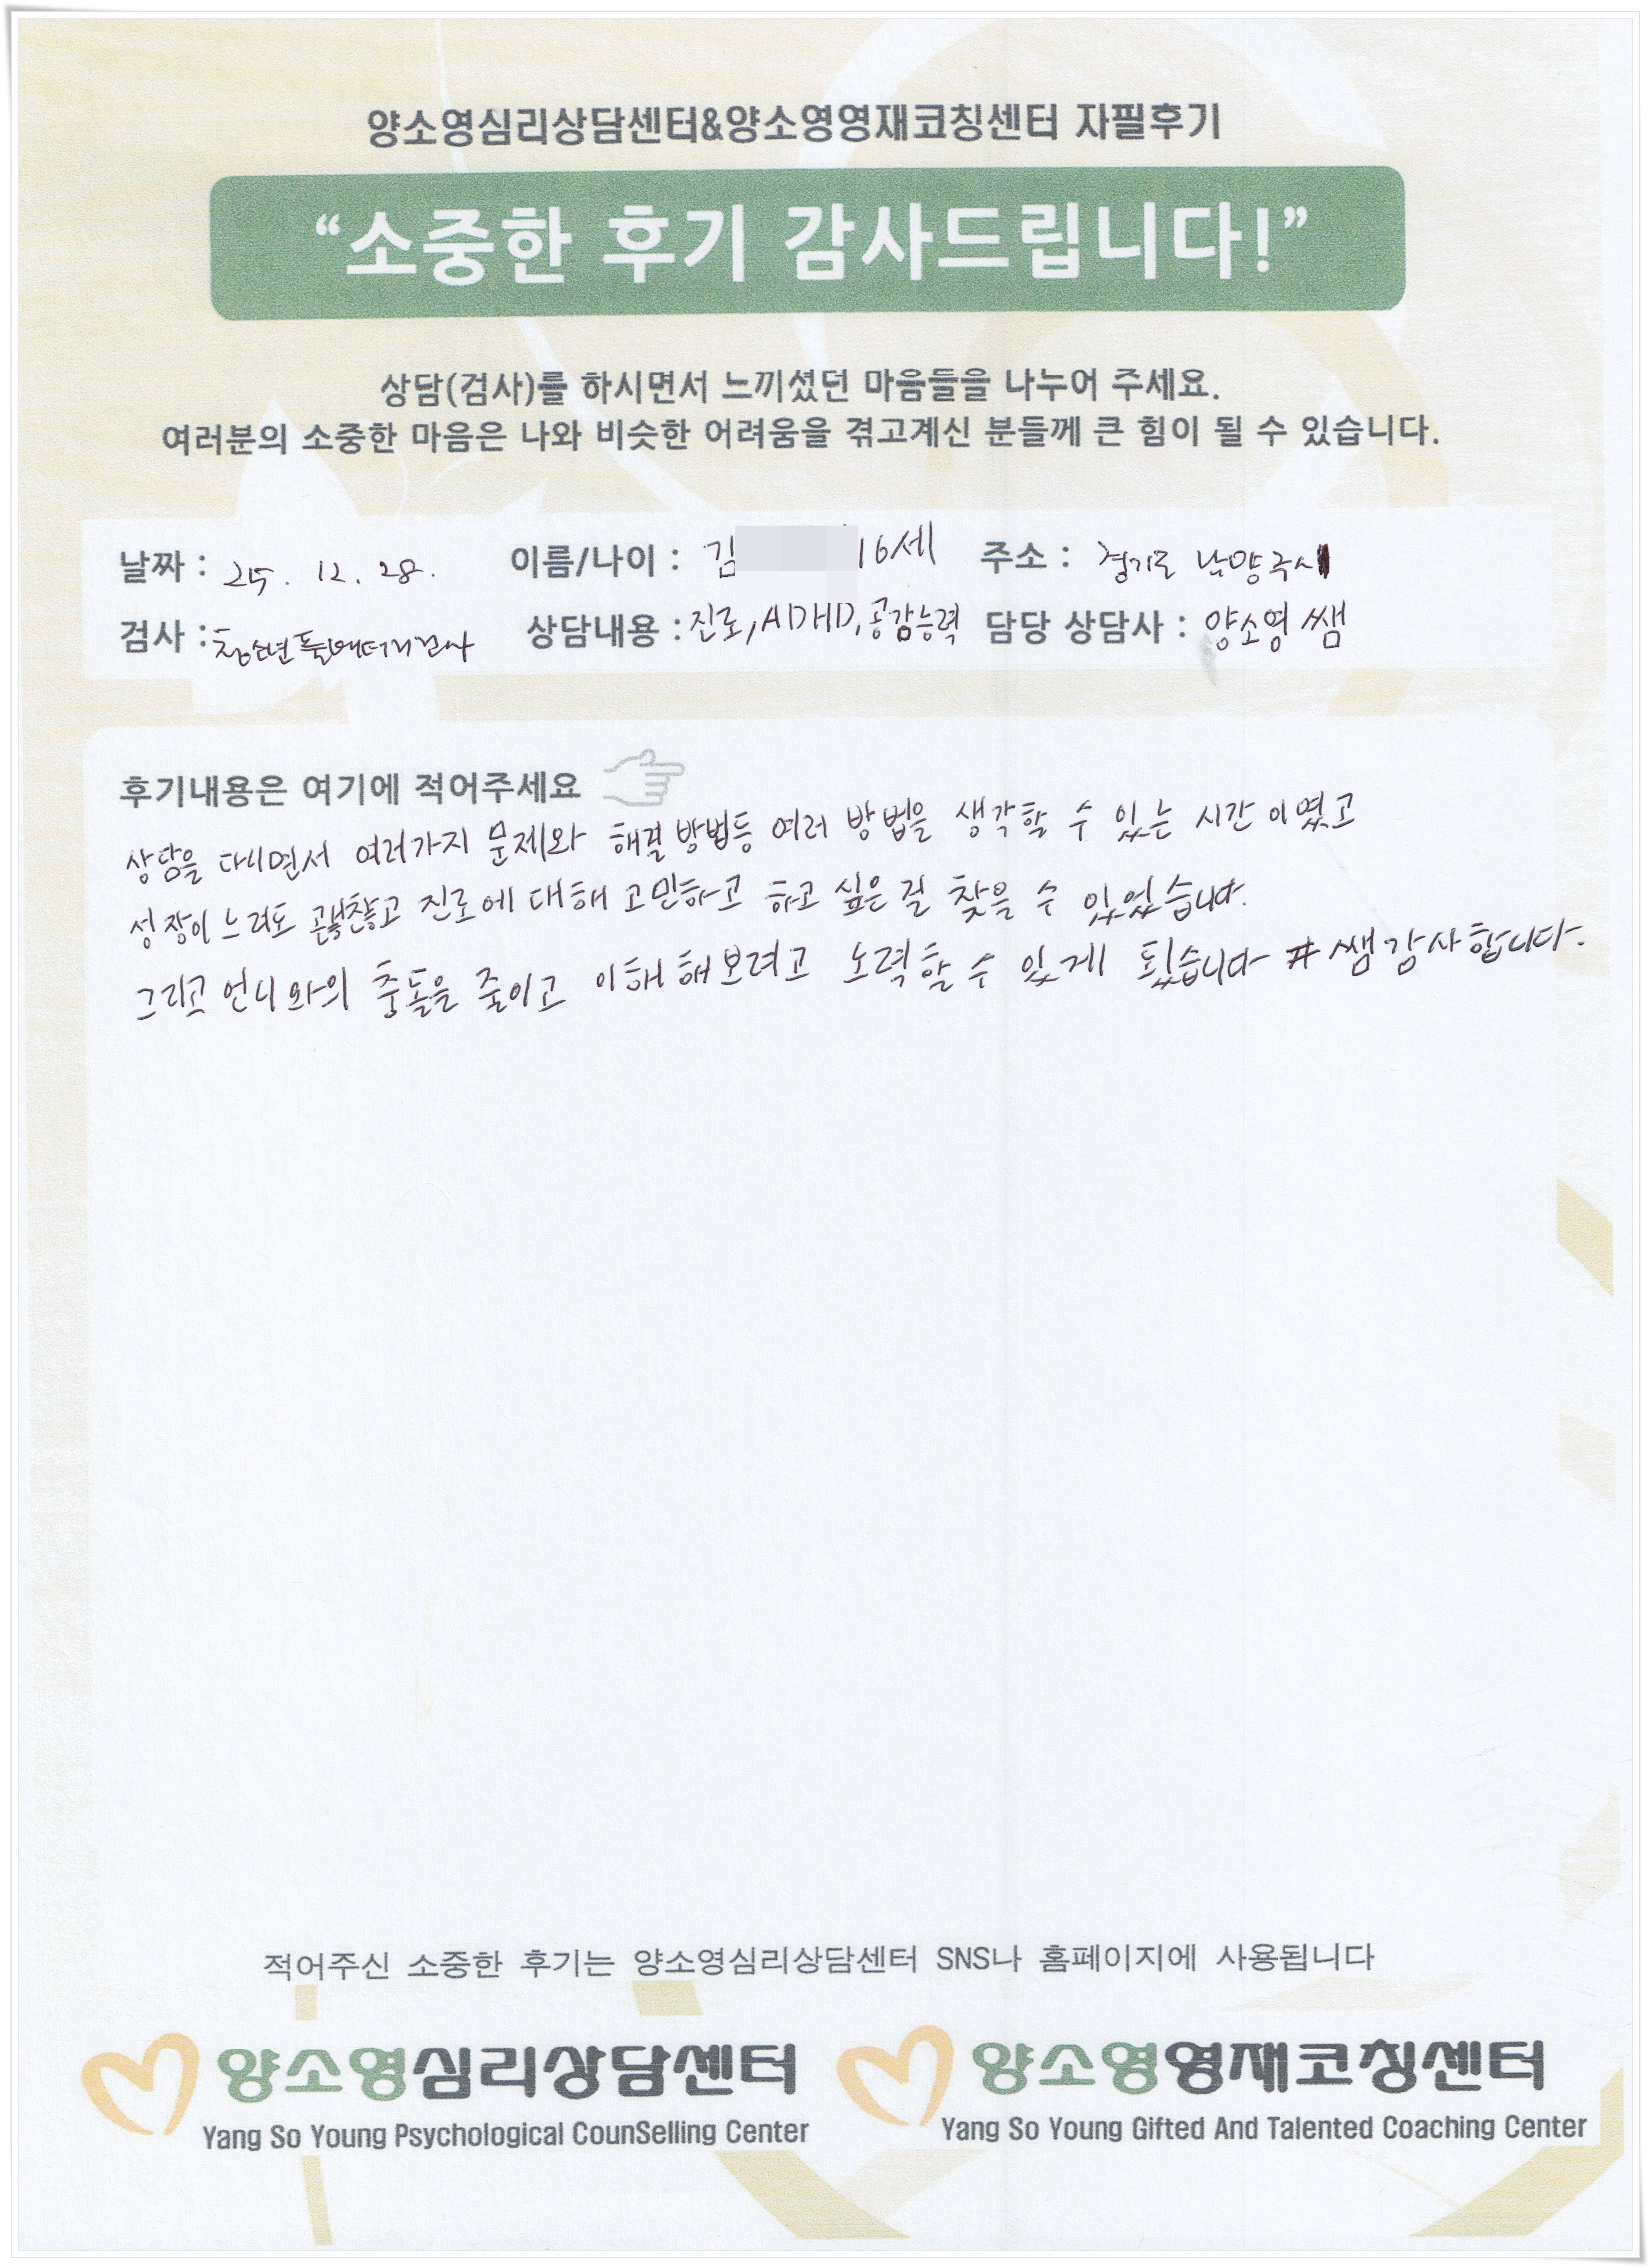 양소영심리상담센터&양소영영재코칭센터 자필후기
“소중한 후기 감사드립니다!”
상담(검사)를 하시면서 느끼셨던 마음들을 나누어 주세요.
여러분의 소중한 마음은 나와 비슷한 어려움을 겪고계신 분들께 큰 힘이 될 수 있습니다.
날짜 : 25. 12. 28. 이름/나이 : 김 16세 주소 : 경기도 남양주시
검사 : 청소년 풀배터리검사 상담내용 : 진로, ADHD, 공감능력 담당 상담사 : 양소영 쌤
후기내용은 여기에 적어주세요
상담을 다니면서 여러가지 문제와 해결방법등 여러 방법을 생각할 수 있는 시간 이였고
성장이 느려도 괜찮고 진로에 대해 고민하고 하고 싶은 걸 찾을 수 있었습니다.
그리고 언니와의 충돌을 줄이고 이해 해보려고 노력할 수 있게 됬습니다 # 쌤 감사합니다.
적어주신 소중한 후기는 양소영심리상담센터 SNS나 홈페이지에 사용됩니다
양소영심리상담센터 양소영영재코칭센터
Yang So Young Psychological CounSelling Center Yang So Young Gifted And Talented Coaching Center